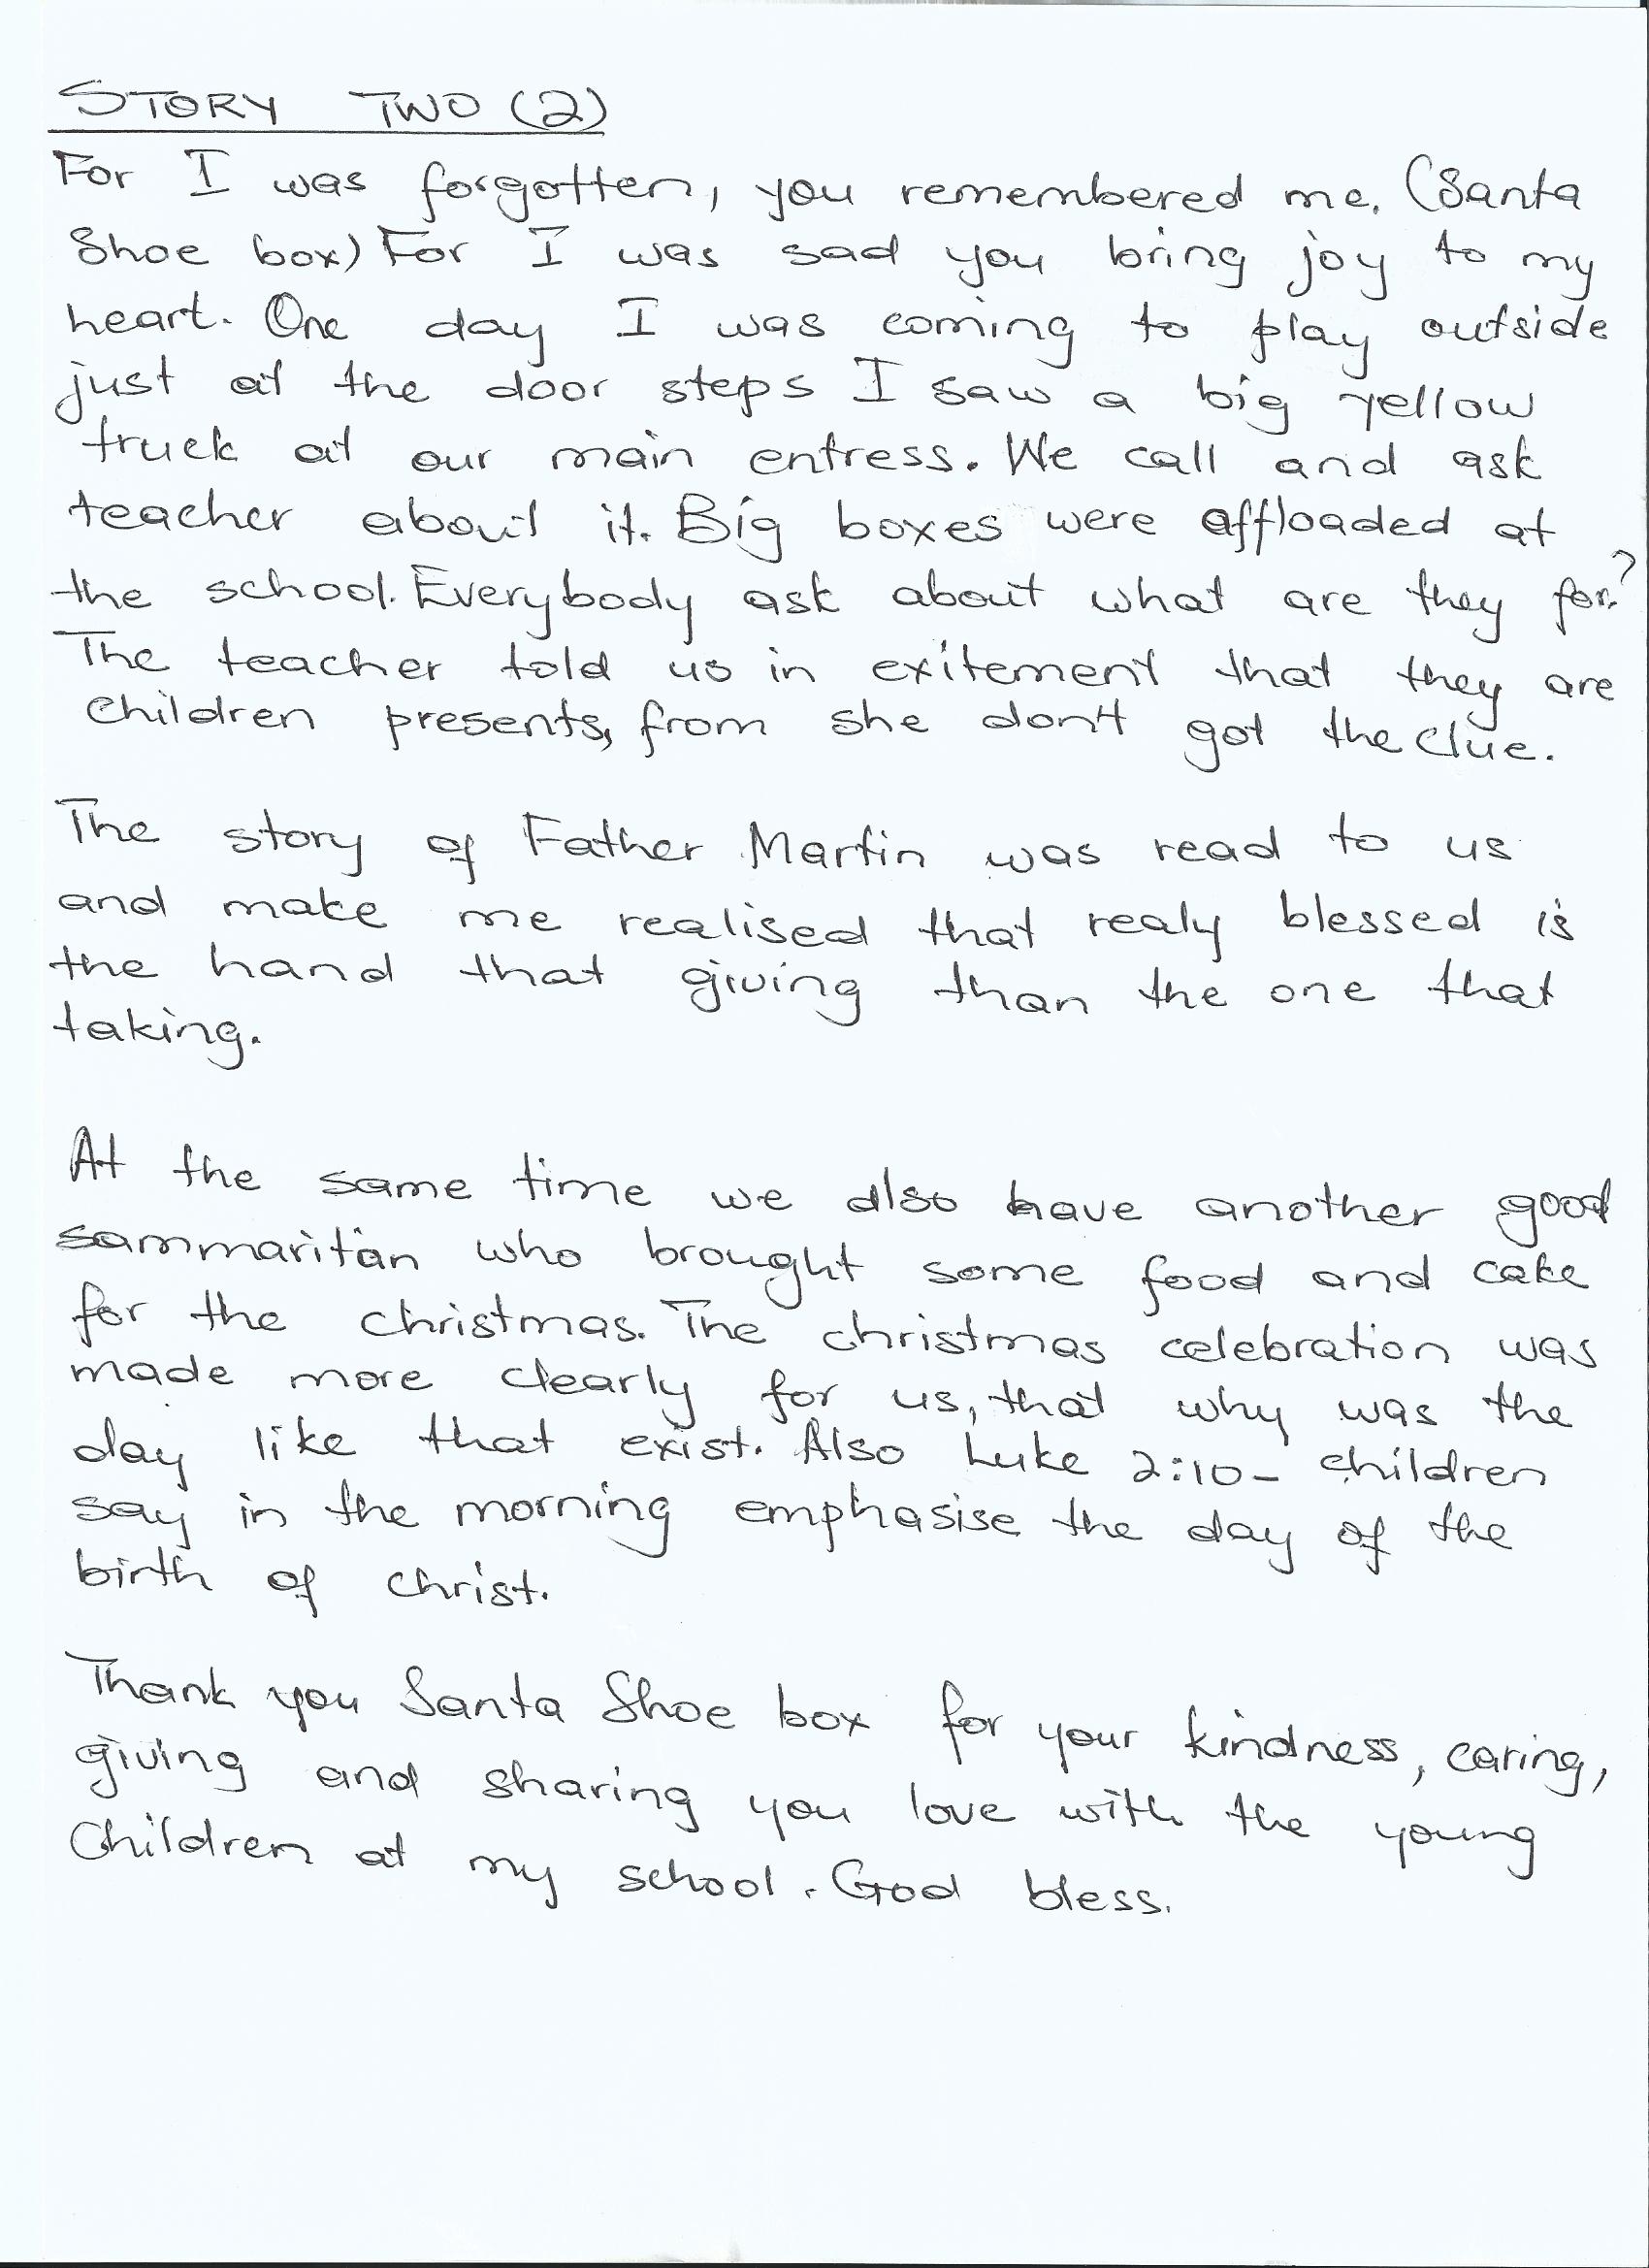 STORY TWO (2)
For I was forgotten, you remembered me. (Santa
Shoe box) For I was sad you bring joy to my
heart. One day I was coming to play outside
just at the door steps I saw a big yellow
truck at our main entress. We call and ask
teacher about it. Big boxes were affloaded at
the school. Everybody ask about what are they for?
The teacher told us in exitement that they are
children presents, from she don't got the clue.
The story of Father Martin was read to us
and make me realised that realy blessed is
the hand that giving than the one that
taking.
At the same time we also have another good
sammaritan who brought some food and cake
for the christmas. The christmas celebration was
made more clearly for us, that why was the
day like that exist. Also Luke 2:10- children
say in the morning emphasise the day of the
birth of christ.
Thank you Santa Shoe box for your kindness, caring,
giving and sharing you love with the young
Children at my school. God bless.